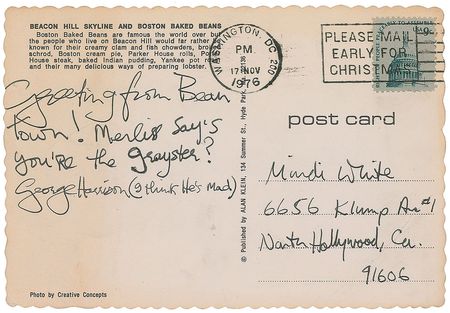 BEACON HILL SKYLINE AND BOSTON BAKED BEANS
Boston Baked Beans are famous the world over but
the people who live on Beacon Hill would far rather be
known for their creamy clam and fish chowders, broiled
schrod, Boston cream pie, Parker House rolls,
House steak, baked Indian pudding, Yankee pot roast
and their many delicious ways of preparing lobster.
WASHINGTON, DC 200
PM
17 NOV
1976
PLEASE MAIL
EARLY FOR
CHRISTMAS
TO ASSEMBLE
9c
Greeting from Bean
Town! Merliss Say's
you're the greyster?
George Harrison (I think He's Mad)
post card
Mindi White
6656 Klump Av #1
North Hollywood, Ca.
91606
© Published by ALAN KLEIN, 134 Summer St., Hyde Park, 02136
Photo by Creative Concepts